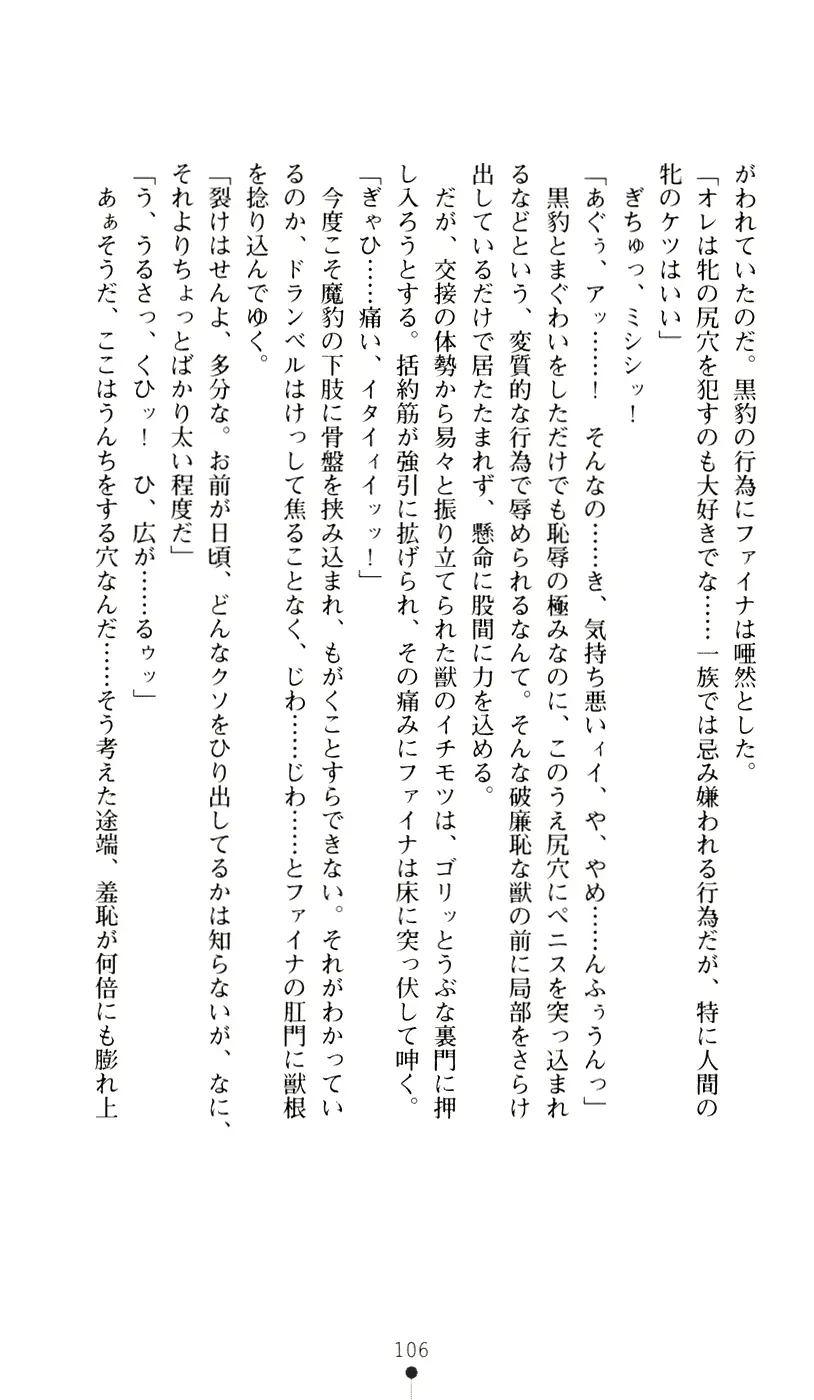 がわれていたのだ。黒豹の行為にファイナは唖然とした。
「オレは牝の尻穴を犯すのも大好きでな……一族では忌み嫌われる行為だが、特に人間の
牝のケツはいい」
ぎちゅっ、ミシシッ！
「あぐぅ、アッ……！　そんなの……き、気持ち悪いィイ、や、やめ……んふぅうんっ」
黒豹とまぐわいをしただけでも恥辱の極みなのに、このうえ尻穴にペニスを突っ込まれ
るなどという、変質的な行為で辱められるなんて。そんな破廉恥な獣の前に局部をさらけ
出しているだけで居たたまれず、懸命に股間に力を込める。
だが、交接の体勢から易々と振り立てられた獣のイチモツは、ゴリッとうぶな裏門に押
し入ろうとする。括約筋が強引に拡げられ、その痛みにファイナは床に突っ伏して呻く。
「ぎゃひ……痛い、イタイィイッッ！」
今度こそ魔豹の下肢に骨盤を挟み込まれ、もがくことすらできない。それがわかってい
るのか、ドランベルはけっして焦ることなく、じわ……じわ……とファイナの肛門に獣根
を捻り込んでゆく。
「裂けはせんよ、多分な。お前が日頃、どんなクソをひり出してるかは知らないが、なに、
それよりちょっとばかり太い程度だ」
「う、うるさっ、くひッ！　ひ、広が……るゥッ」
あぁそうだ、ここはうんちをする穴なんだ……そう考えた途端、羞恥が何倍にも膨れ上
106